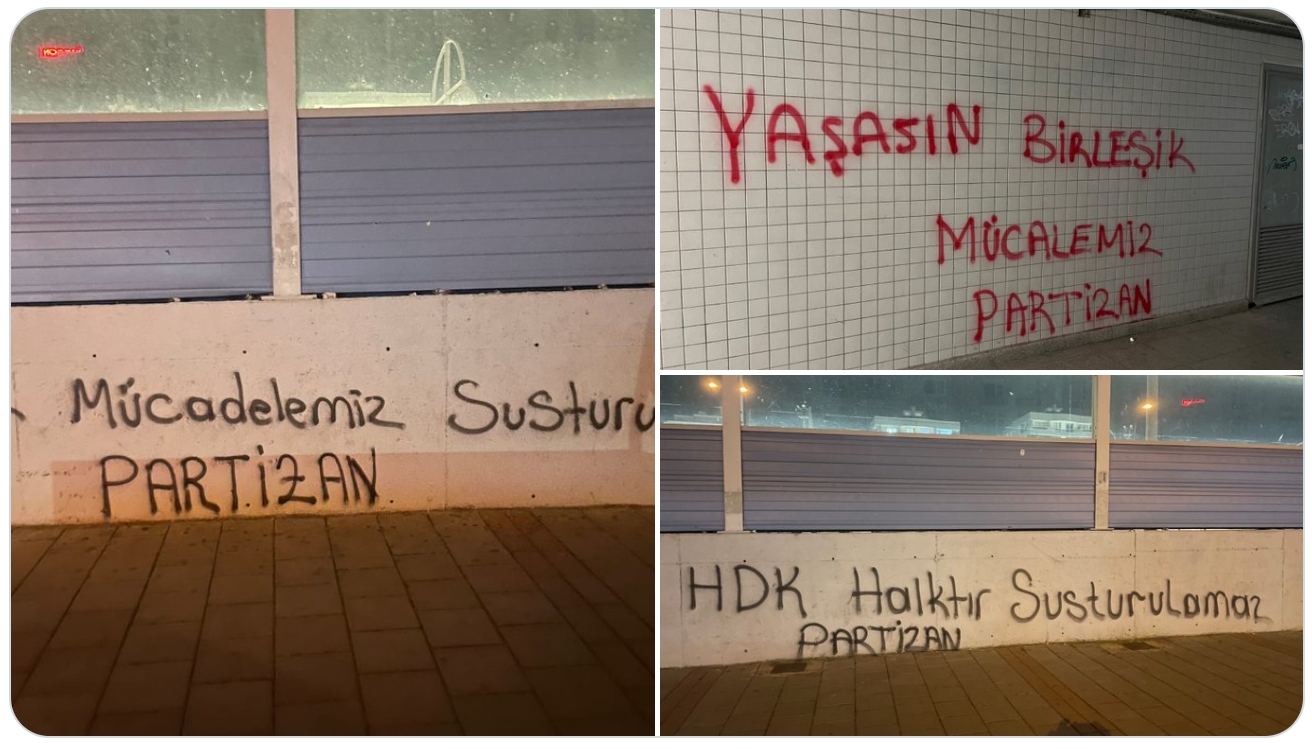 Mücadelemiz Susturu
PARTİZAN
YAŞASIN BİRLEŞİK
MÜCALEMİZ
PARTİZAN
HDK Halktır Susturulamaz
PARTİZAN